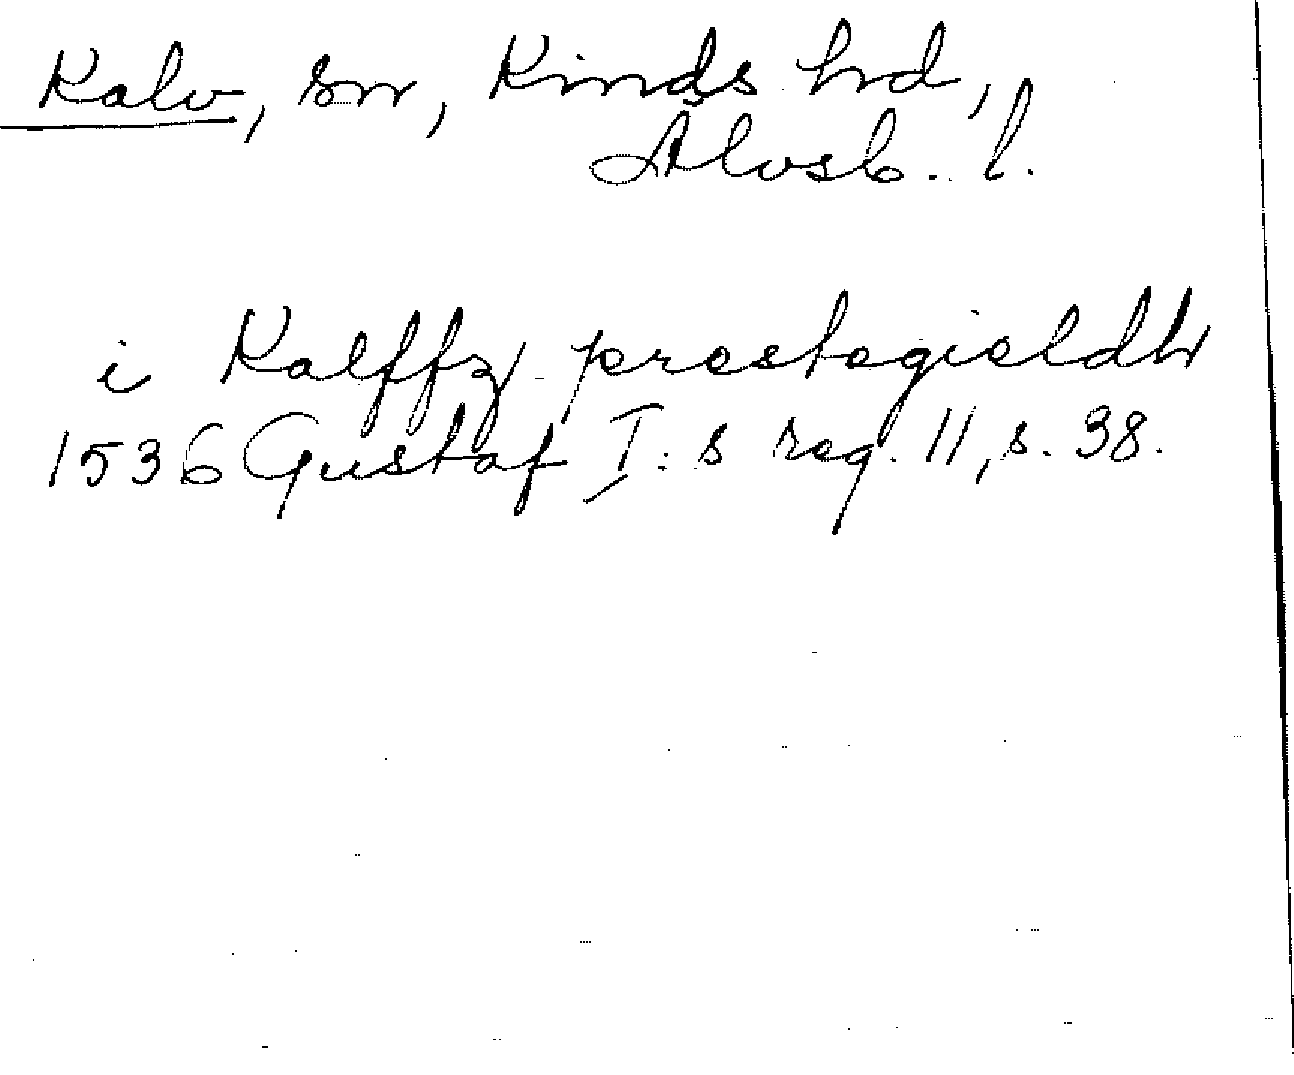 Kalv, sn, Kinds hrd,
Älvsb. l.
i Kalffz prestegieldh
1536 Gustaf I:s reg. 11, s. 38.